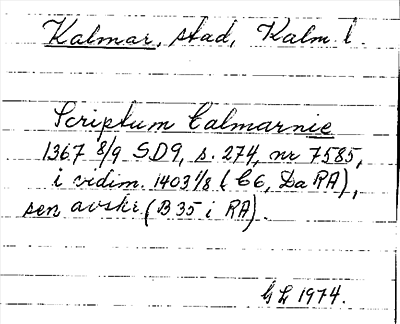 Kalmar, stad, Kalm. l.
Scriptum Calmarnie
1367 8/9 SD9, s. 274, nr 7585,
i vidim. 1403 1/8 (C6, Da RA),
sen avskr. (B 35 i RA).
GL 1974.